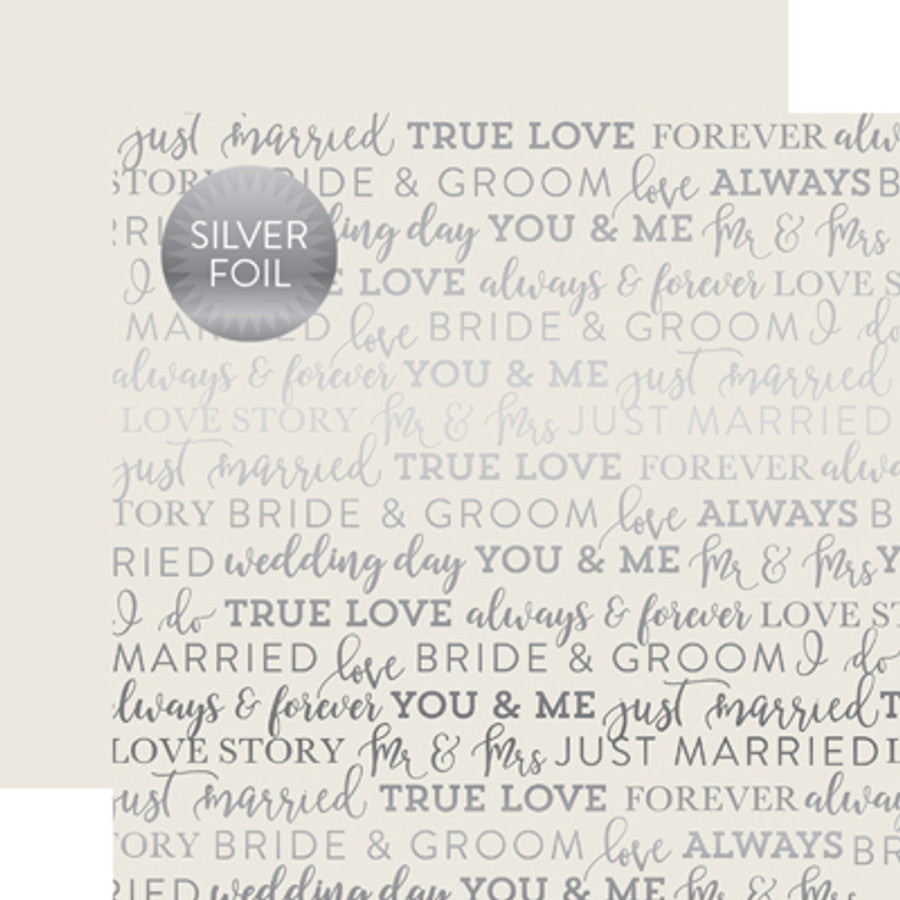 just married TRUE LOVE FOREVER alw
STORY BRIDE & GROOM love ALWAYS B
RRI ing day YOU & ME Mr & Mrs
SILVER
FOIL
I E LOVE always & forever LOVE S
MA ED love BRIDE & GROOM I do
always & forever YOU & ME just married
LOVE STORY Mr & Mrs JUST MARRIED
just married TRUE LOVE FOREVER alwa
TORY BRIDE & GROOM love ALWAYS B
RIED wedding day YOU & ME Mr & Mrs Y
I do TRUE LOVE always & forever LOVE ST
MARRIED love BRIDE & GROOM I do
lways & forever YOU & ME just married T
LOVE STORY Mr & Mrs JUST MARRIED L
just married TRUE LOVE FOREVER alway
TORY BRIDE & GROOM love ALWAYS BR
RIED wedding day YOU & ME Mr & Mrs